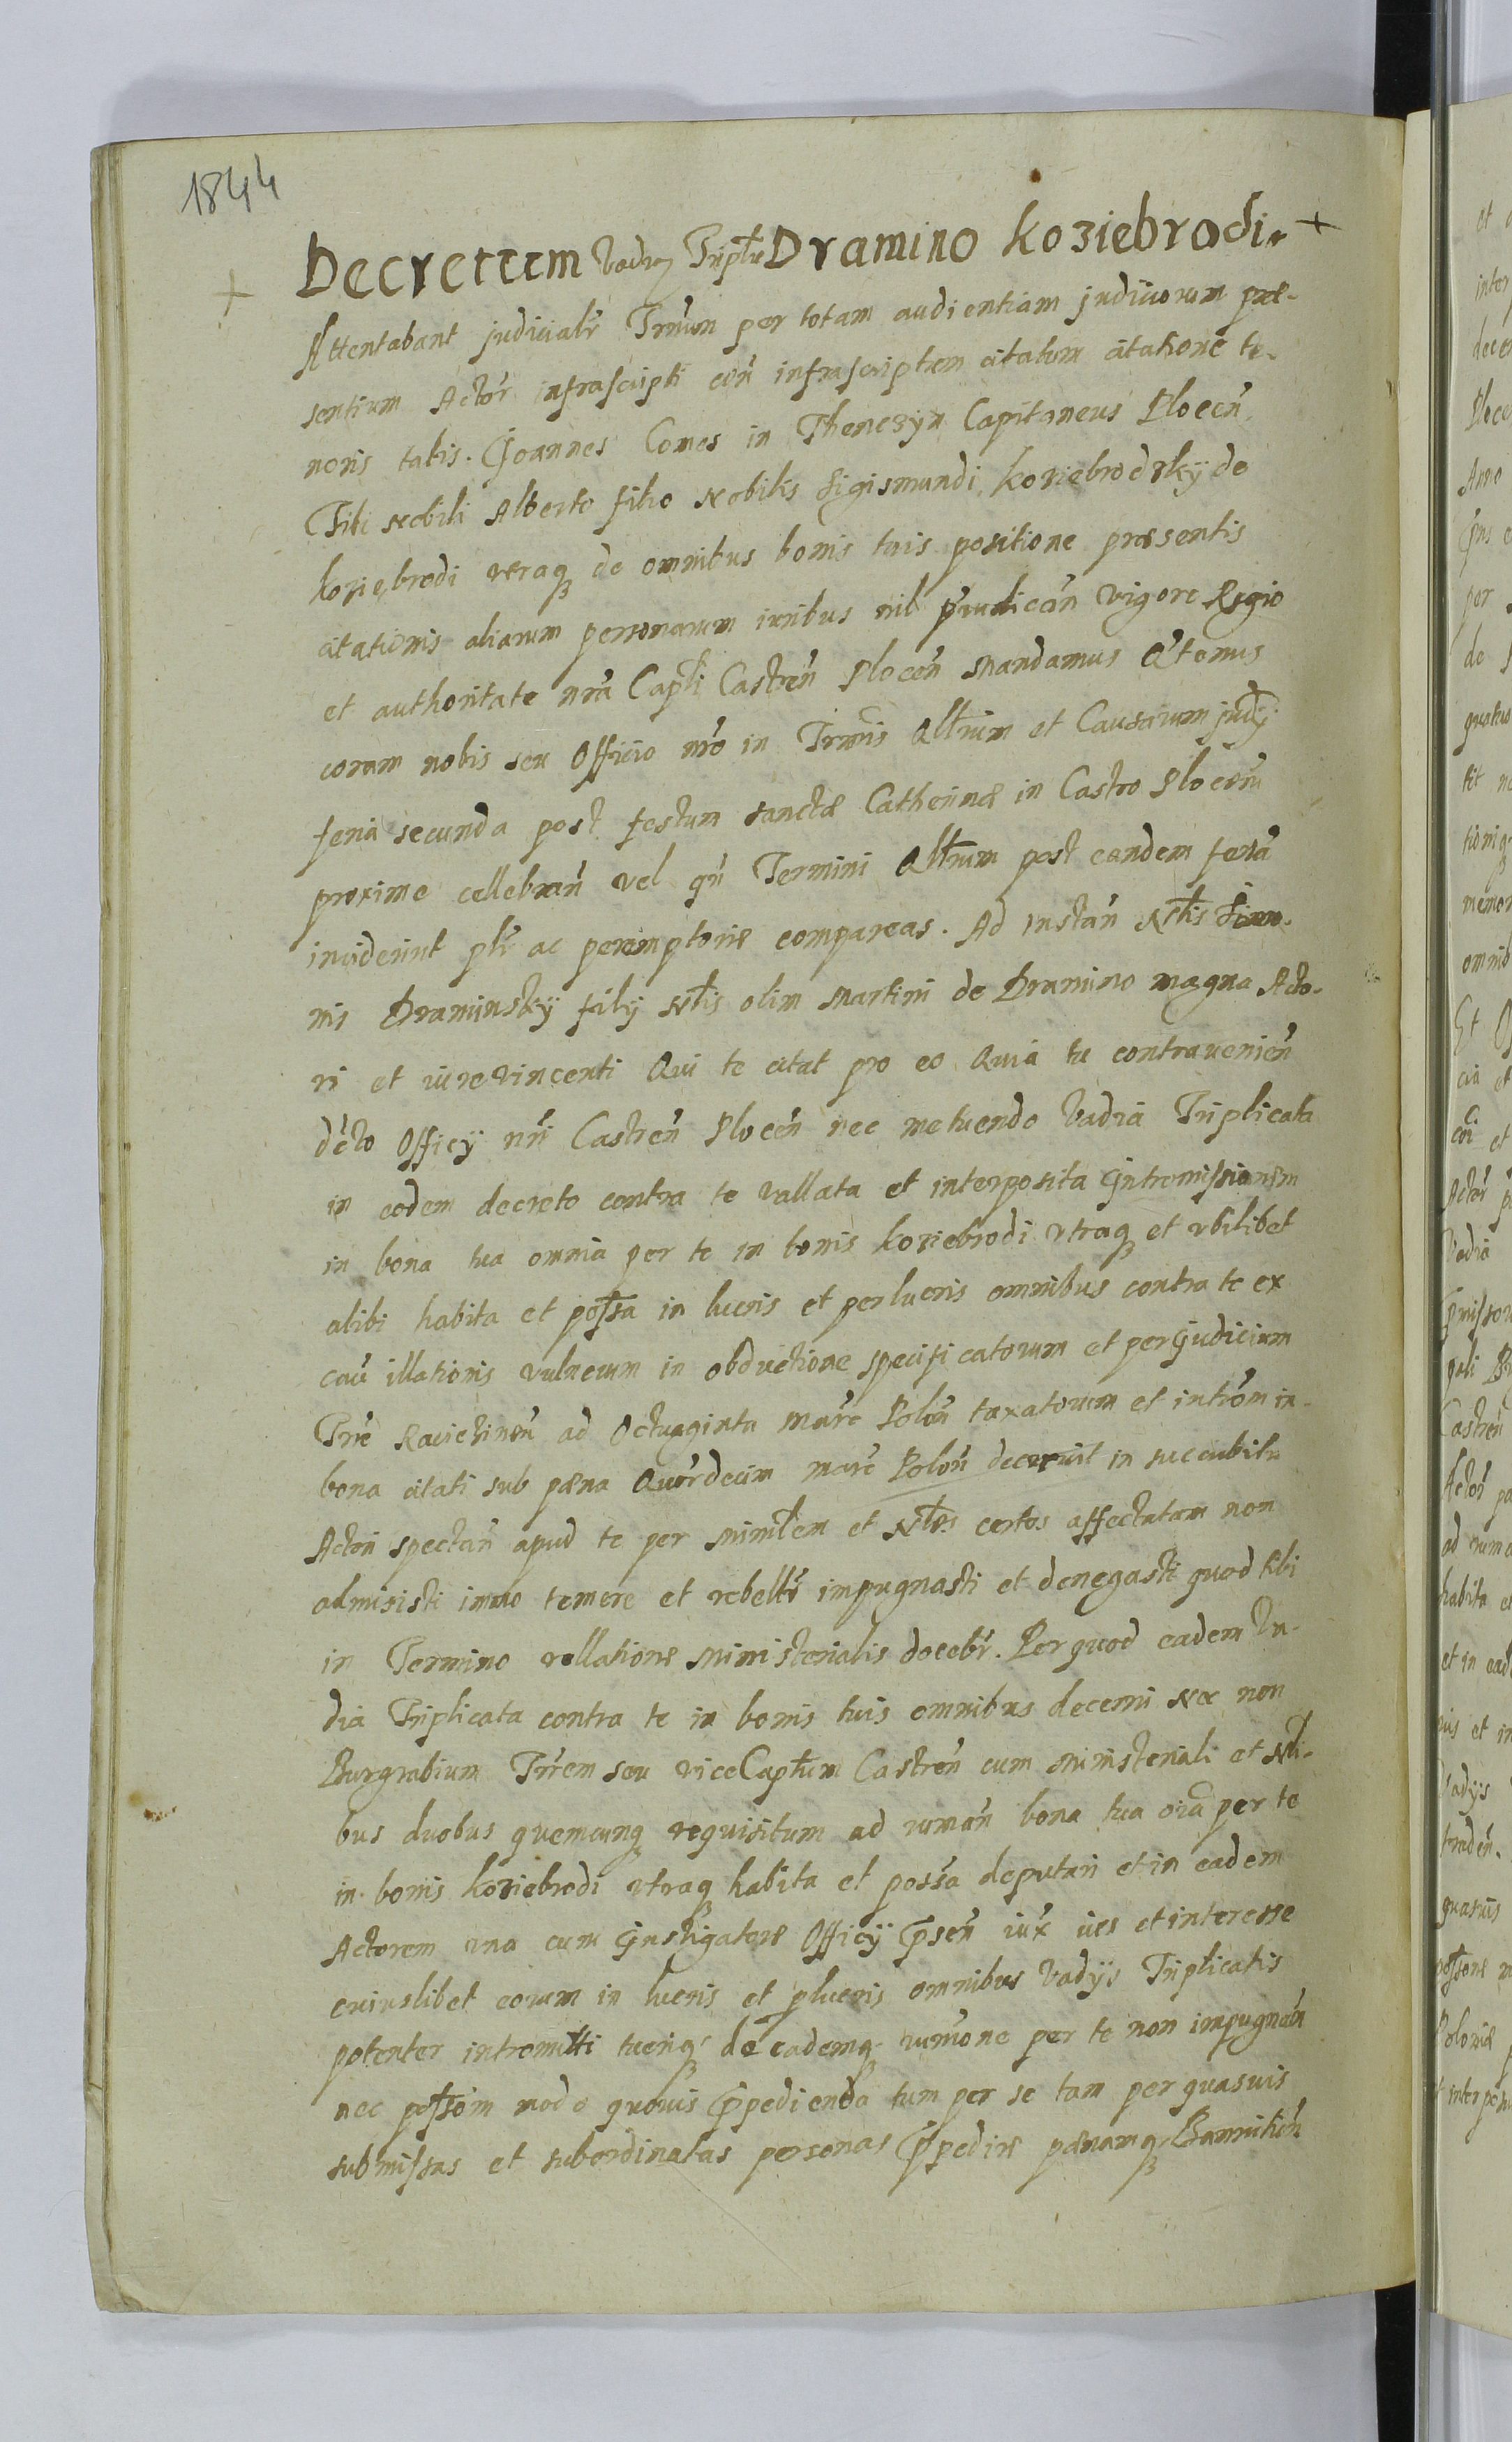 1844
Decretum Vadior Triplu Dramino Koziebrodi.
Attentabant judicialr Trnum per totam audientiam judiciorum præ-
sentium Actor infrascripti con infrascriptum citatum citatione te-
noris talis. Joannes Comes in Thenczyn Capitaneus Plocen
Tibi Nobili Alberto filio Nobilis Sigismundi Koziebrodzky de
Koziebrodi utraq de omnibus bonis tuis positione præsentis
citationis aliarum personarum iuribus nil præiudican vigore Regio
et authoritate nra Capli Castren Plocen Mandamus Qtenus
coram nobis seu Officio nro in Trmis Qllrium et Causarum judij
feria secunda post festum sanctæ Catherinæ in Castro Plocen
proxime cellebran vel qn Termini Qllrium post eandem feria
inciderint plr ac peremptorie compareas. Ad instan Nblis Simo-
nis Draminsky filÿ Nblis olim Martini de Dramino magna Acto-
ri et iure vincenti Qui te citat pro eo Quia tu contravenien
dcto Officÿ nri Castren Plocen nec metuendo Vadia Triplicata
in eodem decreto contra te vallata et interposita Intromissionem
in bona tua omnia per te in bonis Koziebrodi utraq et ubilibet
alibi habita et possa in lucris et perlucris omnibus contra te ex
cau illationis vulnerum in obductione specificatorum et per Judicium
Trre Raviehinen ad Octuaginta marc Polon taxatorum et introm in
bona citati sub pæna Quordecim marc Polon decrevit in succubitu
Actori spectan apud te per Minislem et Nbles certos affectatam non
admisisti immo temere et rebellr impugnasti et denegasti quod tibi
in Termino rellatione Ministerialis docebr. Per quod eadem Va-
dia Triplicata contra te in bonis tuis omnibus decerni Nec non
Burgrabium Trrem seu vice Captum Castren cum Ministeriali et Nbli-
bus duobus quemcunq requisitum ad ruman bona tua oia per te
in bonis Koziebrodi utraq habita et possa deputari et in eadem
Actorem una cum Instigatore Officÿ psen iux ius et interesse
cuiuslibet eorum in lucris et plucris omnibus Vadÿs Triplicatis
potenter intromitti tueriq de eademq rumone per te non impugnan
nec possom modo quovis Ipedienda tum per se tam per quasvis
submissas et subordinatas personas Ipedire pænamq Bannition